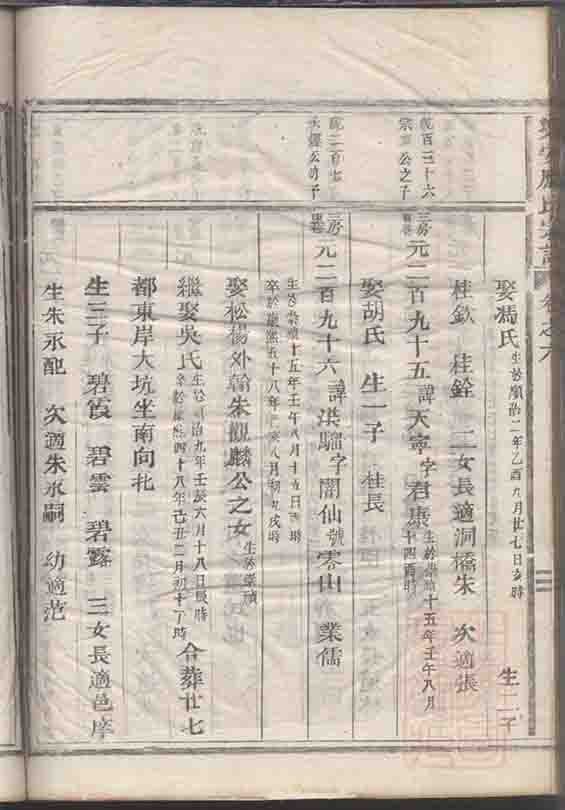 氏宗譜 卷之六
娶馮氏 生於順治二年乙酉九月廿七日亥時 生二子
桂欽 桂銓 二女長適洞橋朱 次適張
苋百三十六
宗 公之子
三房
元二百九十五諱天寧字君康 生於崇禎十五年壬午八月
十四酉時
娶胡氏 生一子 桂長
苋二百
公 子
三房
元二百九十六諱洪騮字閬仙號零山 業儒
生於崇禎十五年壬午八月十五日 時
卒於康熙五十八年 亥八月初九戌時
娶松楊外翰朱觀麟公之女 生於崇禎
繼娶吳氏 生於順治九年壬辰六月十八日辰時
卒於康熙四十八年己丑二月初十 時 合葬廿七
都東岸大坑坐南向北
生三子 碧霞 碧雲 碧露 三女長適邑庠
生朱永配 次適朱永嗣 幼適范